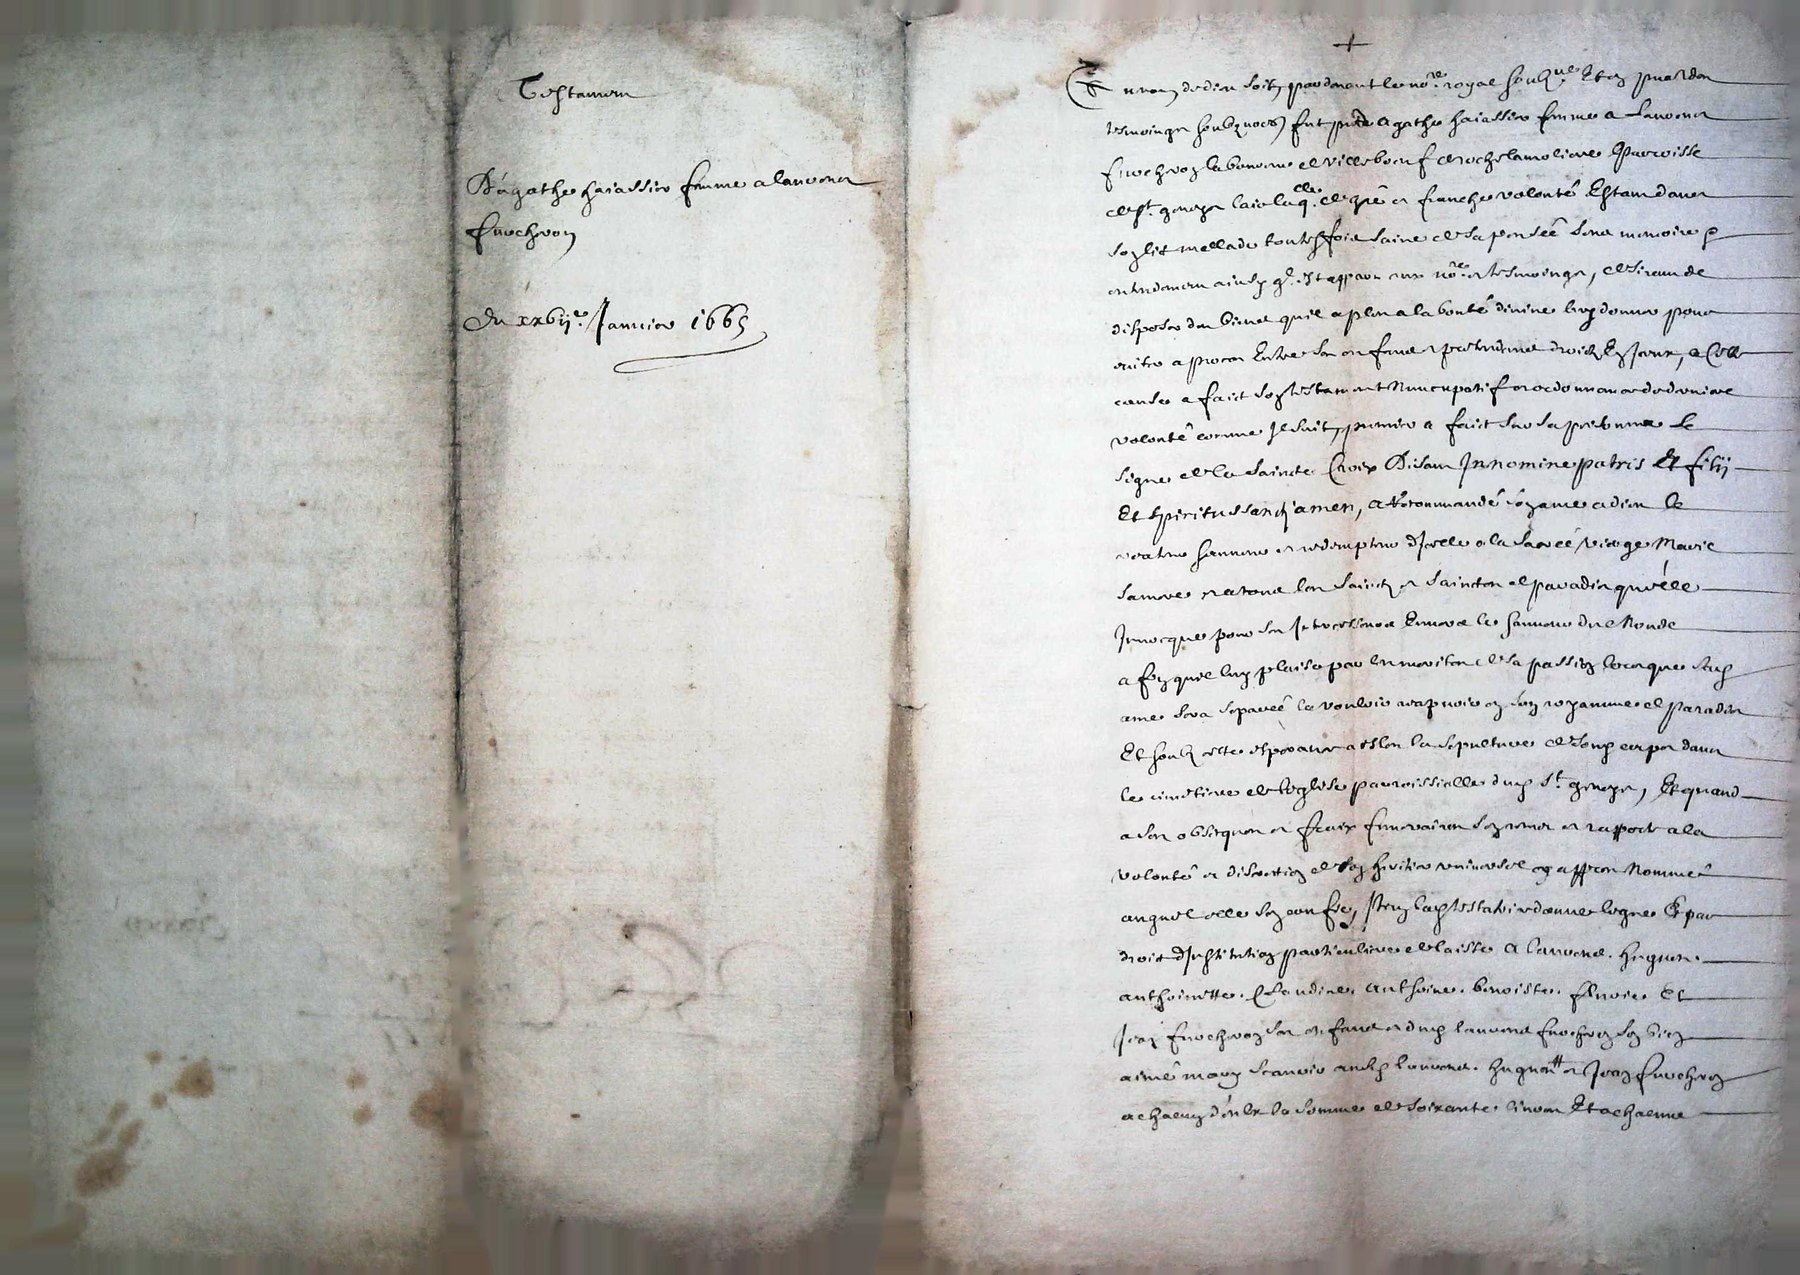 Testament
D'agathe haiassier femme a laurens
furchron
Du xxvije. Janvier 1665
+
Au nom de dieu soit, pardevant le nore. royal soubzne Et en presence des
tesmoings soubznoes) fut pnte agathe haiassier femme a Laurens
furchron laboureur de villebeuf de rochelamoliere Parroisse
de st. geneys laq.lle de gré et franche volonté Estant dans
son lit mallade toutesfois saine de sa pensée bone memoire &
entendement ainsy q'l. Est apparu aux nore. et tesmoings, desirant de
disposer des biens quil a pleu a la bonté divine luy donner pour
eviter a proces Entre ses enfans et pretendans droict En Iceux, a Cette
cause a faict son testament Nuncupatif et ordonnance de derniere
volonté comme Il suit, premier a faict sur sa personne Le
signe de la saincte Croix Disant In nomine patris Et filij
Et spiritus sancti amen, a Recommandé son ame a dieu le
createur sauveur et redempteur d'Icelle a la Sacrée Vierge Marie
sa mere et a tous les saincts et sainctes de paradis qu'elle
Invocque pour ses Intercesseurs Envers le sauveur du Monde
a fin quil luy plaise par les merites de sa passion lorsque son
ame sera separée la vouloir recepvoir en son royaume de paradis
Et soubz cette esperance a esleu la sepulture de son corps dans
le cimetiere de l'eglise parroissielle dud. st. geneys, Et quand
a ses obseques et fraix funeraires s'en remet et rapporte a la
volonté et discretion de son heritier universel cy appres Nommé
auquel elle s'en confie, Item lad. testatrice donne legue & par
droit d'Institution particuliere delaisse a laurens. hugues.
anthoinette. Claudine. anthoine. benoiste. fleurie Et
Jean furchron ses enfans et dud. laurens furchron son bien
aimé mary scavoir ausd. laurens. hugues et Jean furchron
a chacun d'eulx la somme de soixante livres Et a chacune